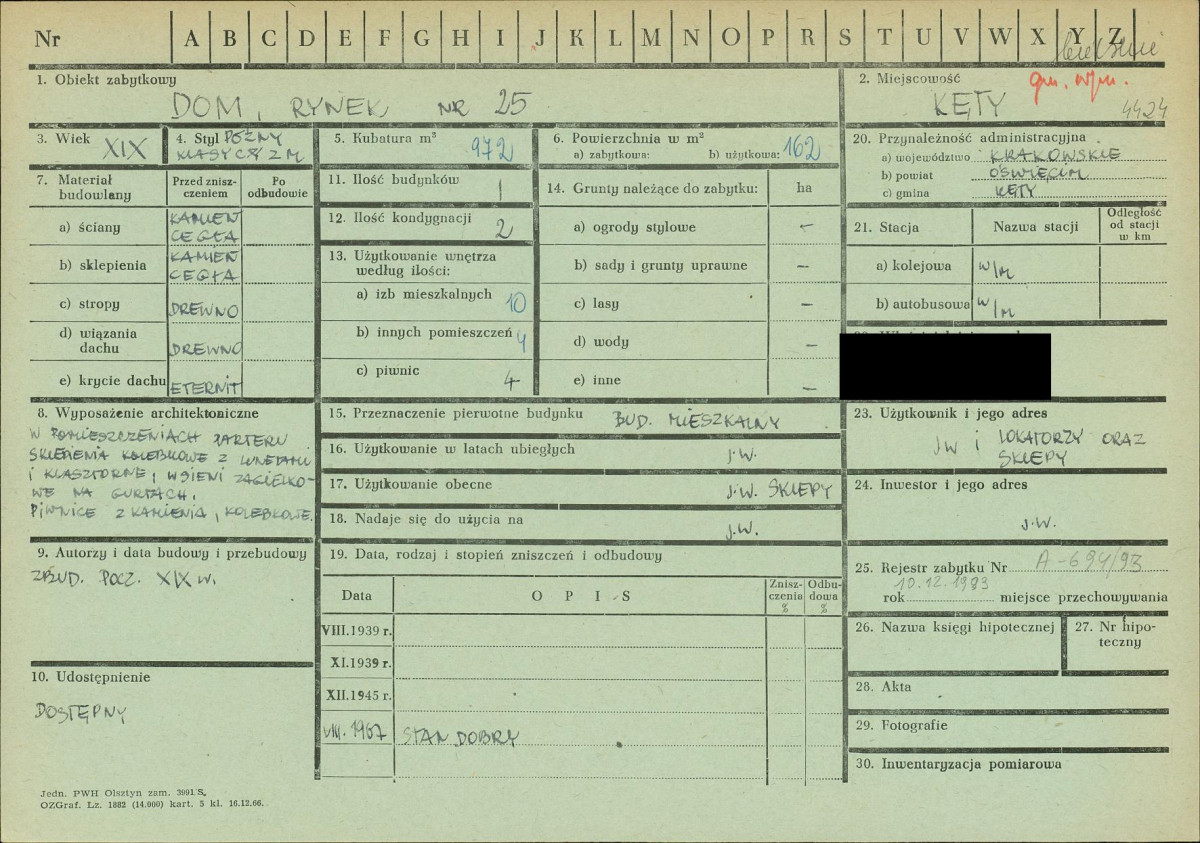 Nr A B C D E F G H I J K L M N O P R S T U V W X Y Z
1. Obiekt zabytkowy
DOM, RYNEK NR 25
2. Miejscowość
KĘTY
4424
3. Wiek XIX
4. Styl PÓŹNY
KLASYCYZM
5. Kubatura m³
972
6. Powierzchnia w m²
a) zabytkowa: b) użytkowa: 162
20. Przynależność administracyjna
a) województwo KRAKOWSKIE
b) powiat OŚWIĘCIM
c) gmina KĘTY
7. Materiał budowlany
Przed zniszczeniem
Po odbudowie
a) ściany KAMIEŃ
CEGŁA
b) sklepienia KAMIEŃ
CEGŁA
c) stropy DREWNO
d) wiązania dachu DREWNO
e) krycie dachu ETERNIT
11. Ilość budynków 1
12. Ilość kondygnacji 2
13. Użytkowanie wnętrza
według ilości:
a) izb mieszkalnych 10
b) innych pomieszczeń 4
c) piwnic 4
14. Grunty należące do zabytku: ha
a) ogrody stylowe –
b) sady i grunty uprawne –
c) lasy –
d) wody –
e) inne –
21. Stacja Nazwa stacji Odległość
od stacji
w km
a) kolejowa w/m
b) autobusowa w/m
8. Wyposażenie architektoniczne
W POMIESZCZENIACH PARTERU
SKLEPIENIA KOLEBKOWE Z LUNETAMI
I KLASZTORNE, W SIENI ŻAGIELKO-
WE NA GURTACH.
PIWNICE Z KAMIENIA, KOLEBKOWE.
9. Autorzy i data budowy i przebudowy
ZBUD. POCZ. XIX w.
10. Udostępnienie
DOSTĘPNY
15. Przeznaczenie pierwotne budynku BUD. MIESZKALNY
16. Użytkowanie w latach ubiegłych j.w.
17. Użytkowanie obecne j.w. SKLEPY
18. Nadaje się do użycia na j.w.
19. Data, rodzaj i stopień zniszczeń i odbudowy
Data O P I S Znisz-
czenia
% Odbu-
dowa
%
VIII.1939 r.
XI.1939 r.
XII.1945 r.
VIII.1967 STAN DOBRY
23. Użytkownik i jego adres
JW i LOKATORZY ORAZ
SKLEPY
24. Inwestor i jego adres
j.w.
25. Rejestr zabytku Nr A-694/93
10.12.1993
rok miejsce przechowywania
26. Nazwa księgi hipotecznej
27. Nr hipo-
teczny
28. Akta
29. Fotografie
30. Inwentaryzacja pomiarowa
Jedn. PWH Olsztyn zam. 3991 S.
OZGraf. Lz. 1882 (14.000) kart. 5 kl. 16.12.66.